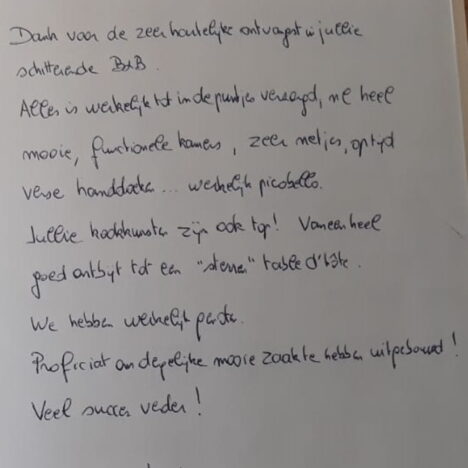 Dank voor de zeer hartelijke ontvangst in jullie
schitterende B&B.
Alles is werkelijk tot in de puntjes verzorgd, nl heel
mooie, functionele kamers, zeer netjes, op tijd
verse handdoeken... werkelijk picobello.
Jullie kookkunsten zijn ook top! Van een heel
goed ontbijt tot een "sterren" table d'hôte.
We hebben werkelijk
Proficiat om degelijke mooie zaak te hebben uitgebouwd!
Veel succes verder!